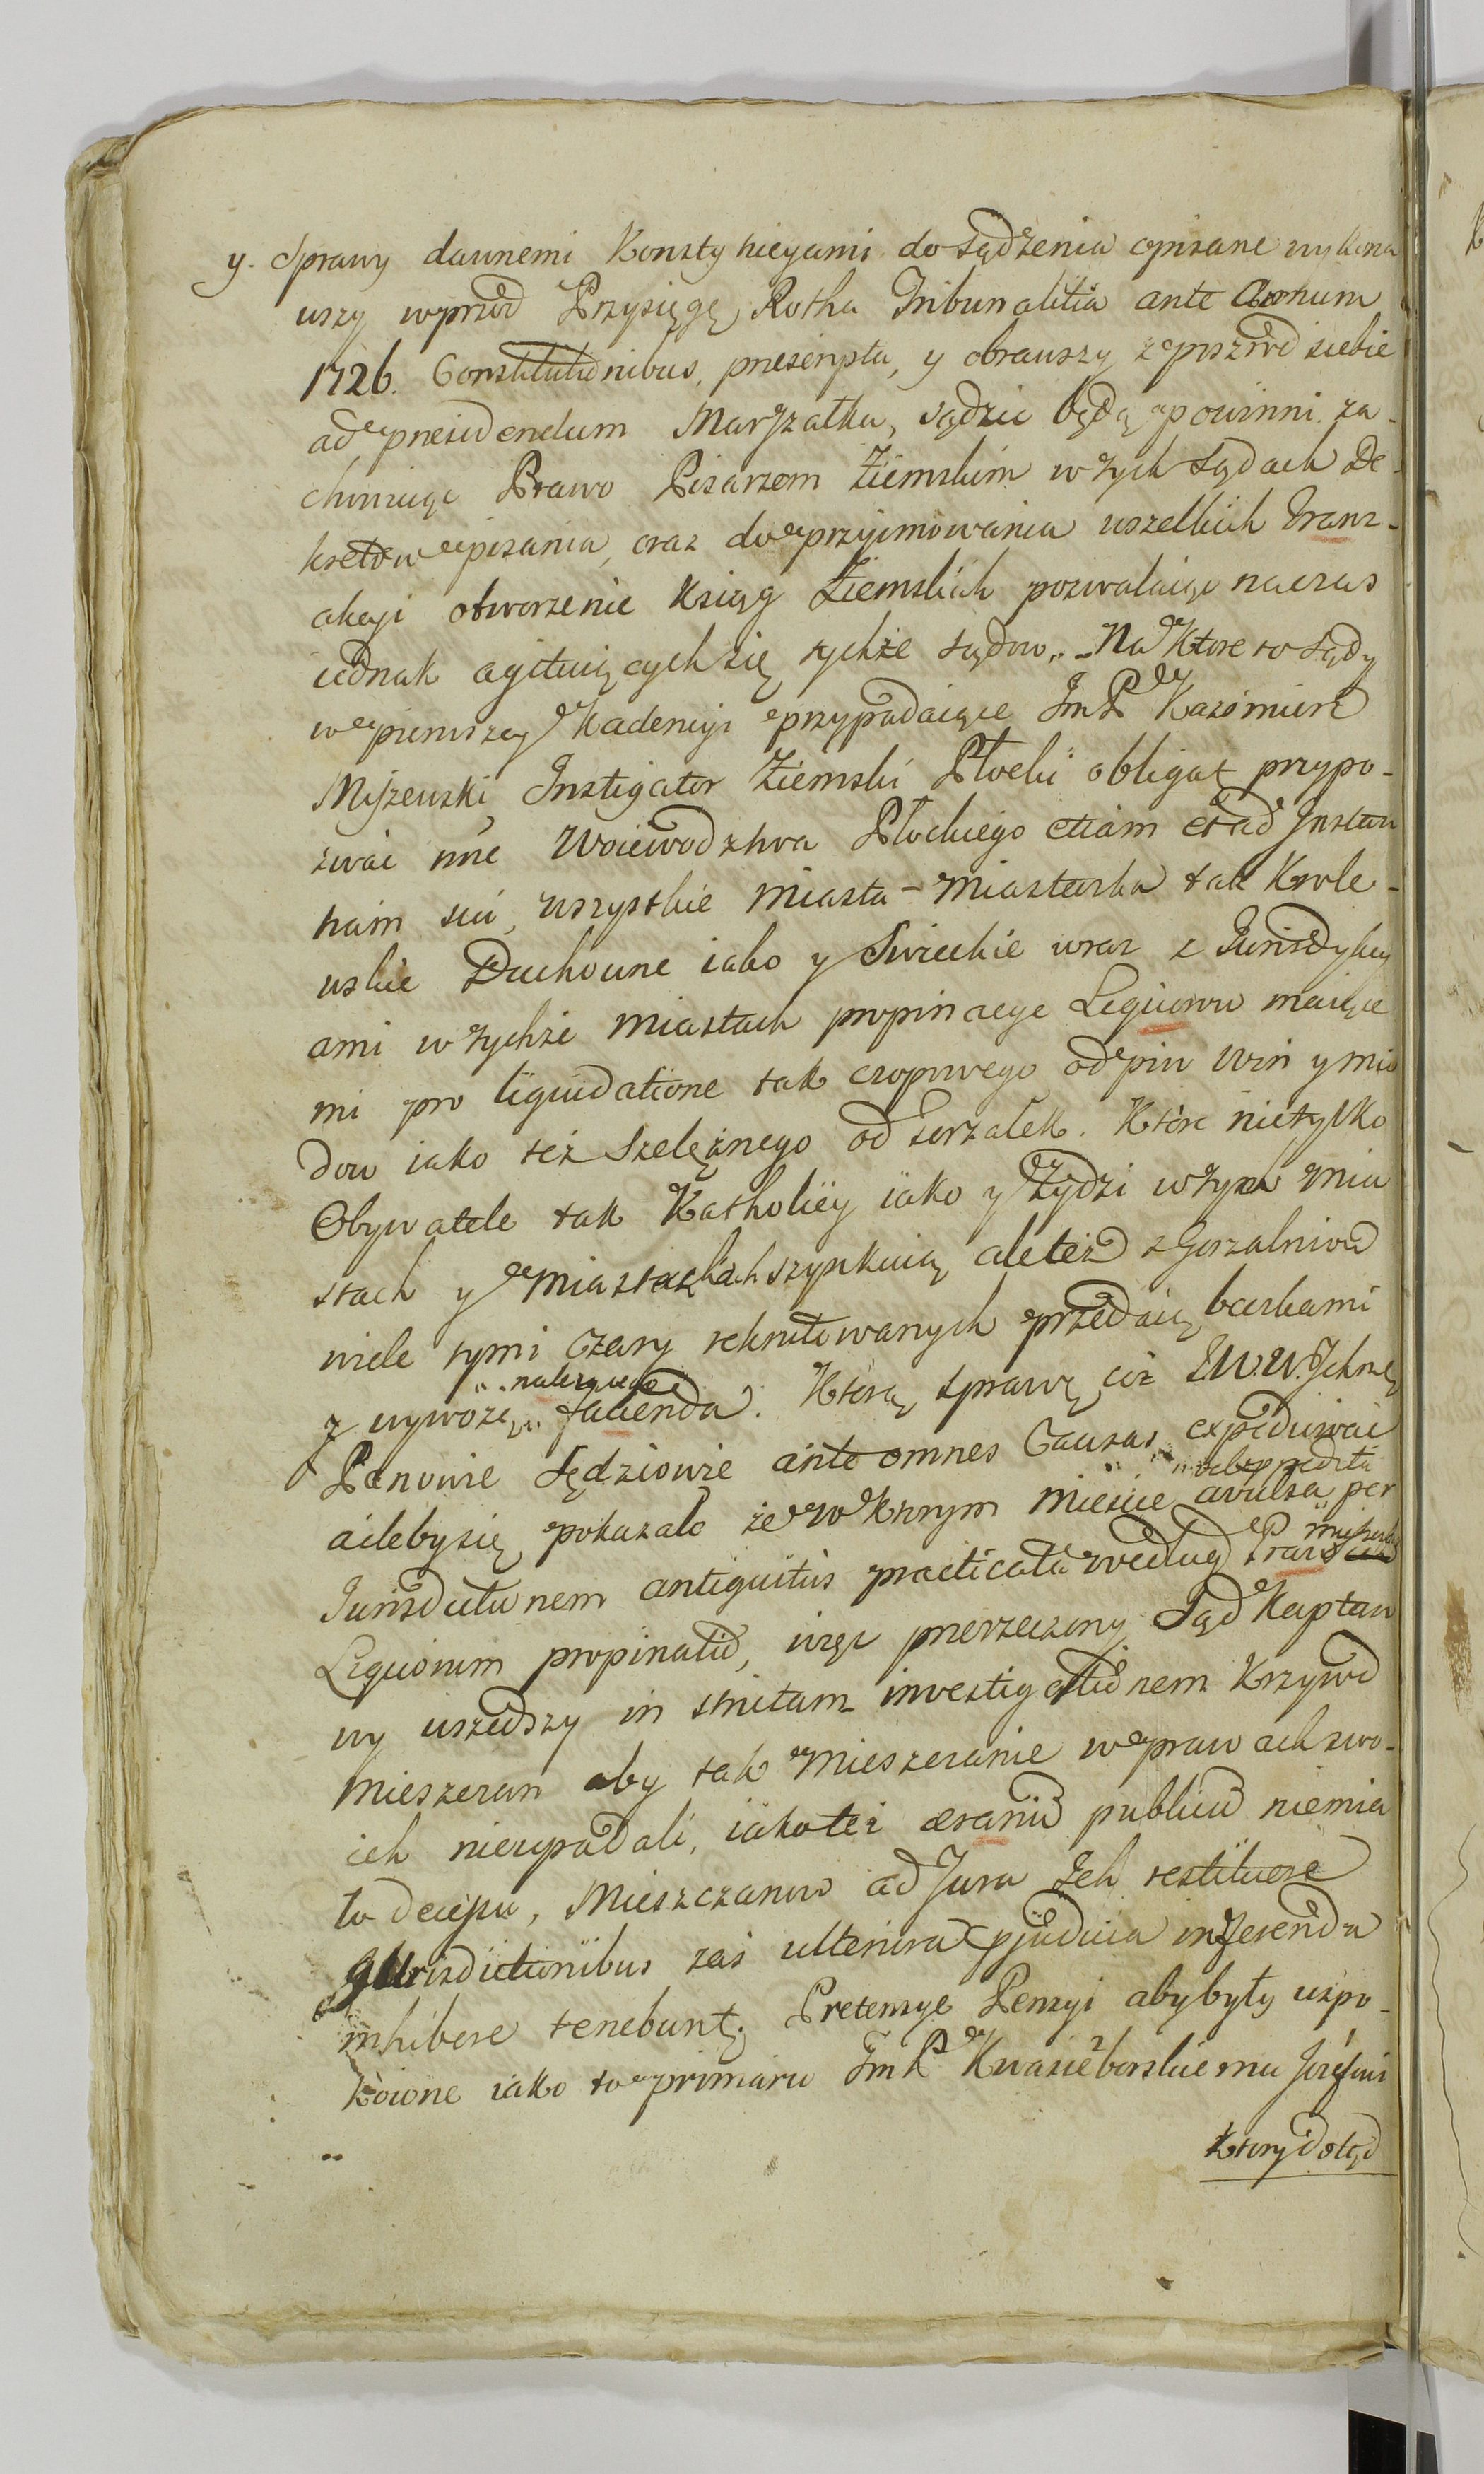 y. Sprawy dawnemi Konstytucyami do sądzenia opisane wykona
wszy wprzod Przysięgę Rotha Tribunalitia ante Annum
1726. Constitutionibus, prescripta, y obrawszy zposrzod siebie
ad presidendum Marszałka, sądzic będą powinni za-
chowuiąc Prawo Pisarzom Ziemskim w tych Sądach De-
kretow pisania, oraz do przyimowania wszelkich Tranz-
akcyi otworzenie Ksiąg Ziemskich pozwalaiąc na czas
iednak agituiących się tychże sądow. Na Ktore to Sądy
w pierwszey Kadencyi przypadaiące Jm P Kazimierz
Mijzewski Instigator Ziemski Płocki obligat przypo-
zwac inne Woiewodztwa Płockiego etiam et ad Instan
tiam sui, wszystkie Miasta - Miasteczka tak Krole-
wskie Duchowne iako y Swieckie wraz z Jurisdykcy
ami w tychże Miastach propinacye Liquorow maiące
mi pro liquidatione tak czopowego od piw win y mio
dow iako też Szelężnego od Gorzałek. Ktore nietylko
Obywatele tak Katholicy iako y Żydzi w tych mia
stach y Miasteczkach szynkuią ale też z Gorzalniow
wiele tymi czasy rekrutowanych przedaią beczkami
z wywozę „należącego„ facienda. Ktorą sprawę ciż J.W.W. Ichmć
Panowie Sędziowie ante omnes Causas expediowac
a ieleby się pokazało że w ktorym Miescie avulsa per
Jurisdictionem antiquitus practicata według Praw mieyskich
Liquorum propinatio, więc przerzeczony Sąd Kaptur
wy wszedszy in strictam investigationem Krzywd
Mieszczan aby tak Mieszczanie w prawach swo-
ich nieupadali, iako też aerario publico niemia
to decessu, Mieszczanow ad Jura Ich restituere
Jurisdictionibus zaś ulteriora pjudicia inferenda
inhibere tenebunt. Pretensye Pensyi aby były uspo-
koione iako to primario Jm P Kwasieborskiemu Jozefowi
Ktory dotąd